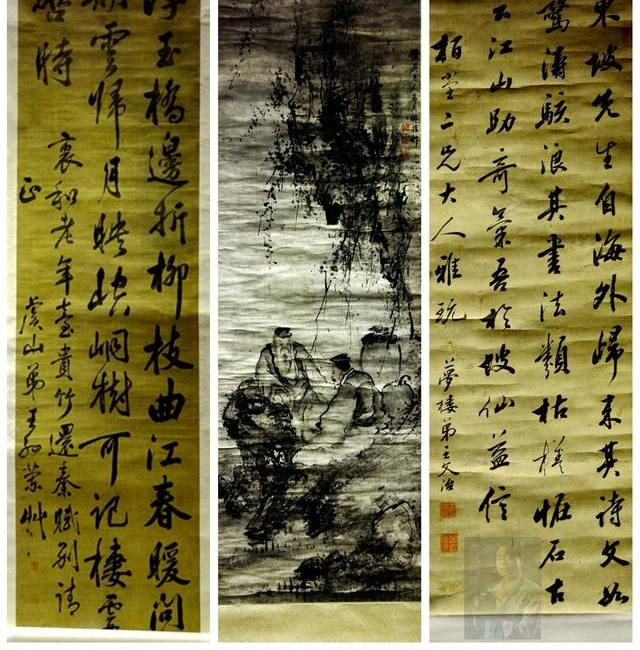 玉橋邊折柳枝曲江春暖問
雲歸月映崆峒樹可記棲雲
時
和老年臺貴竹還秦賦別請
正
虞山弟王榮艸
東坡先生自海外歸來其詩文如
驚濤駭浪其書法類枯槎怪石古
云江山助奇氣吾於坡仙益信
柏堂二兄大人雅玩
夢樓弟王文治